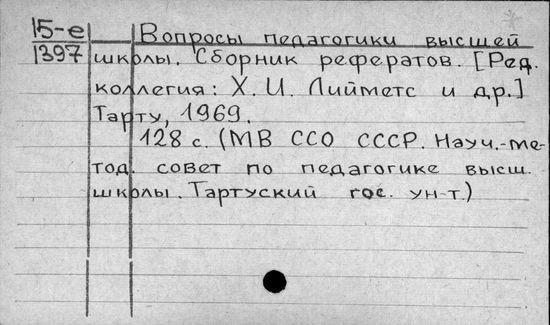 15-е
1397
Вопросы педагогики высшей
школы. Сборник рефератов. [Ред.
коллегия: Х. И. Лийметс и др.]
Тарту, 1969.
128 с. (МВ ССО СССР. Науч.-ме-
тод. совет по педагогике высш.
школы. Тартуский гос. ун-т.)